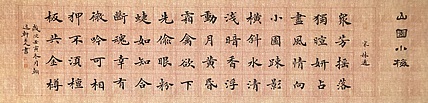 山園小梅
宋 林逋
衆芳搖落
獨暄妍占
盡風情向
小園疏影
橫斜水清
淺暗香浮
動月黃昏
霜禽欲下
先偷眼粉
蜨如知合
斷魂幸有
微吟可相
狎不須檀
板共金樽